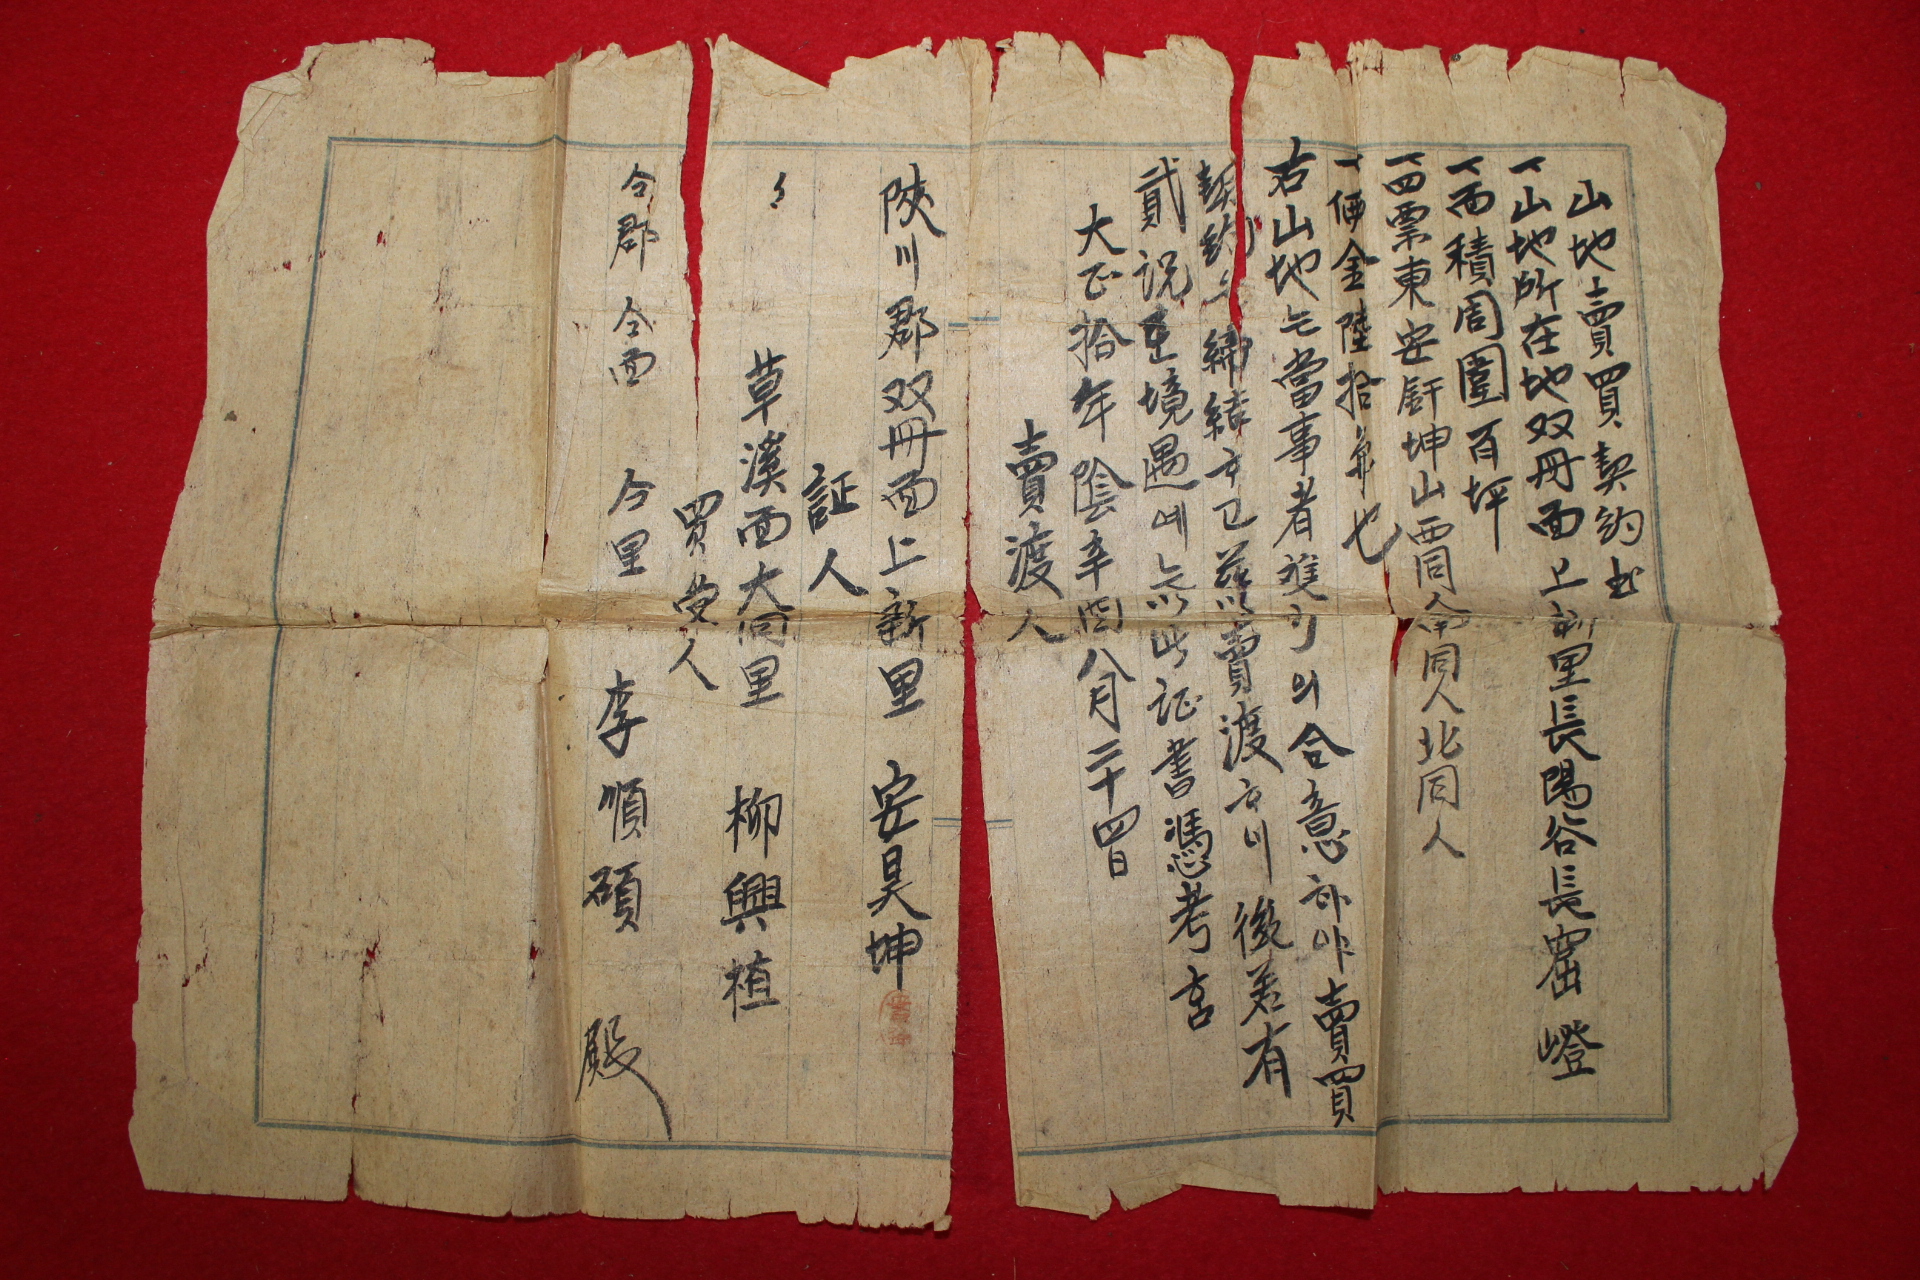 山地賣買契約書
一山地所在地双冊面上新里長陽谷長窟嶝
一面積周圍百坪
一四票東安 坤山西同人南同人北同人
一価金陸拾 也
右山地는當事者雙方의合意하야賣買
契約을締結하고玆以賣渡하니後若有
貳説 境遇에는以此証書憑考宮
大正拾年陰辛酉八月二十四日
賣渡人
陜川郡双冊面上新里 安昊坤
証人
〻 草溪面大同里 柳興植
買受人
仝郡仝面 仝里 李順碩 殿